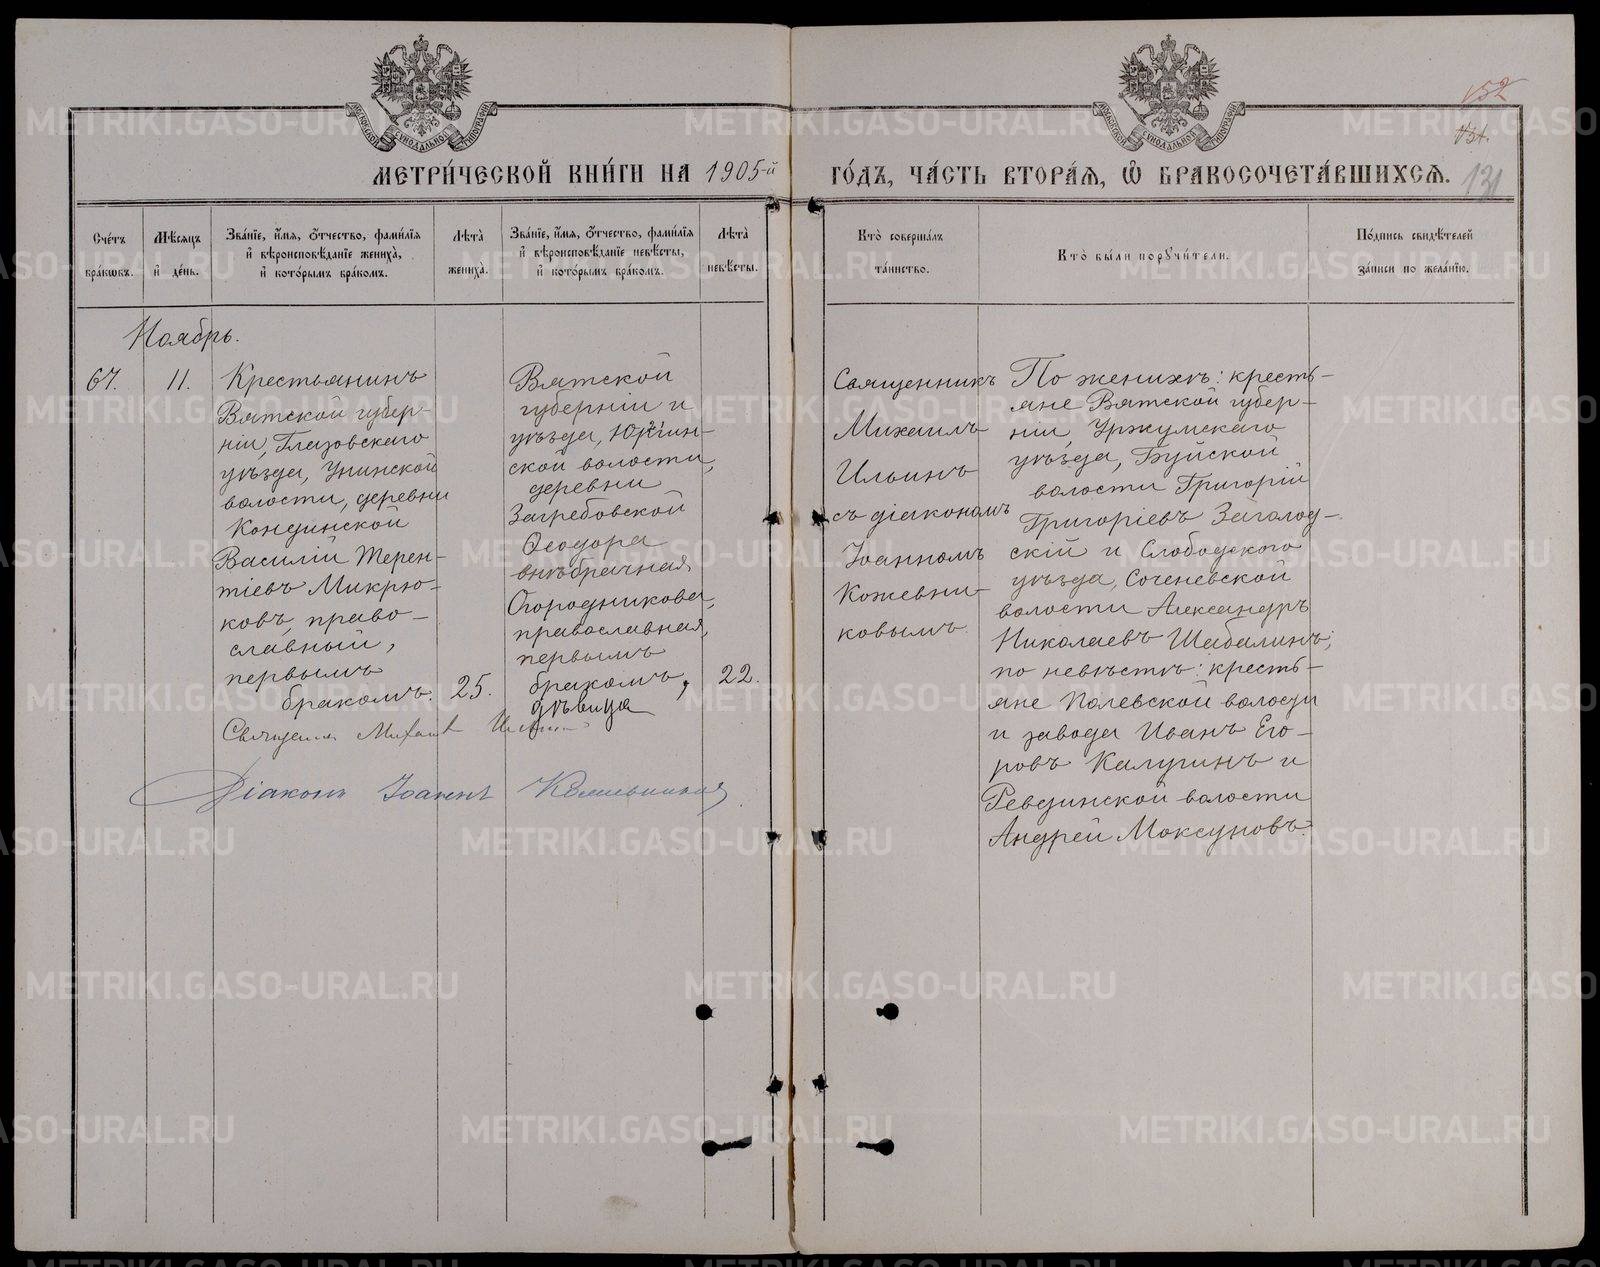 152
131.
МЕТРИ́ЧЕСКОЙ КНИ́ГИ НА 1905-й ГО́ДЪ, ЧА́СТЬ ВТОРА́Ѧ, Ѽ БРАКОСОЧЕТА́ВШИХСѦ. 131
Сче́тъ бра́кωвъ.
Мѣ́сяцъ и́ де́нь.
Зва́нїе, и́мя, ѻ́тчество, фами́лїя и́ вѣроисповѣ́данїе жениха̀, и́ кото́рымъ бра́комъ.
Лѣта̀ жениха̀.
Зва́нїе, и́мя, ѻ́тчество, фами́лїя и́ вѣроисповѣ́данїе невѣ́сты, и́ кото́рымъ бра́комъ.
Лѣта̀ невѣ́сты.
Кто̀ соверша́лъ та́инство.
Кто̀ бы́ли порꙋчи́тели.
По́дпись свидѣ́телей за́писи по жела́нїю.
Ноябрь.
67.
11.
Крестьянинъ
Вятской губер-
ніи, Глазовскаго
уѣзда, Унинской
волости, деревни
Кондинской
Василій Терен-
тіевъ Микрю-
ковъ, право-
славный,
первымъ
бракомъ.
25.
Вятской
губерніи и
уѣзда,
ской волости,
деревни
Загребовской
Ѳеодора
внѣбрачная
Огородникова,
православная,
первымъ
бракомъ,
дѣвица
22.
Священникъ
Михаилъ
Ильинъ
съ діакономъ
Іоанномъ
Кожевни-
ковымъ
По женихѣ: кресть-
яне Вятской губер-
ніи, Уржумскаго
уѣзда, Буйской
волости Григорій
Григоріевъ Загалод-
скій и Слободского
уѣзда, Соченевской
волости Александръ
Николаевъ Шабалинъ;
по невѣстѣ: кресть-
яне Полевской волости
и завода Иванъ Его-
ровъ Калугинъ и
Ревдинской волости
Андрей Моксуновъ.
Священникъ Михаилъ Ильинъ
Діаконъ Іоаннъ Кожевниковъ
METRIKI.GASO-URAL.RU